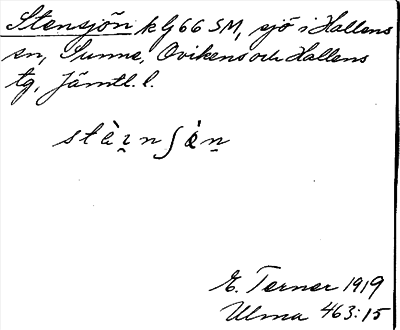 Stensjön k G 66 SM, sjö i Hallens
sn, Sunne, Oviken och Hallens
tg, Jämtl. l.
E. Terner 1919
Ulma 463:15